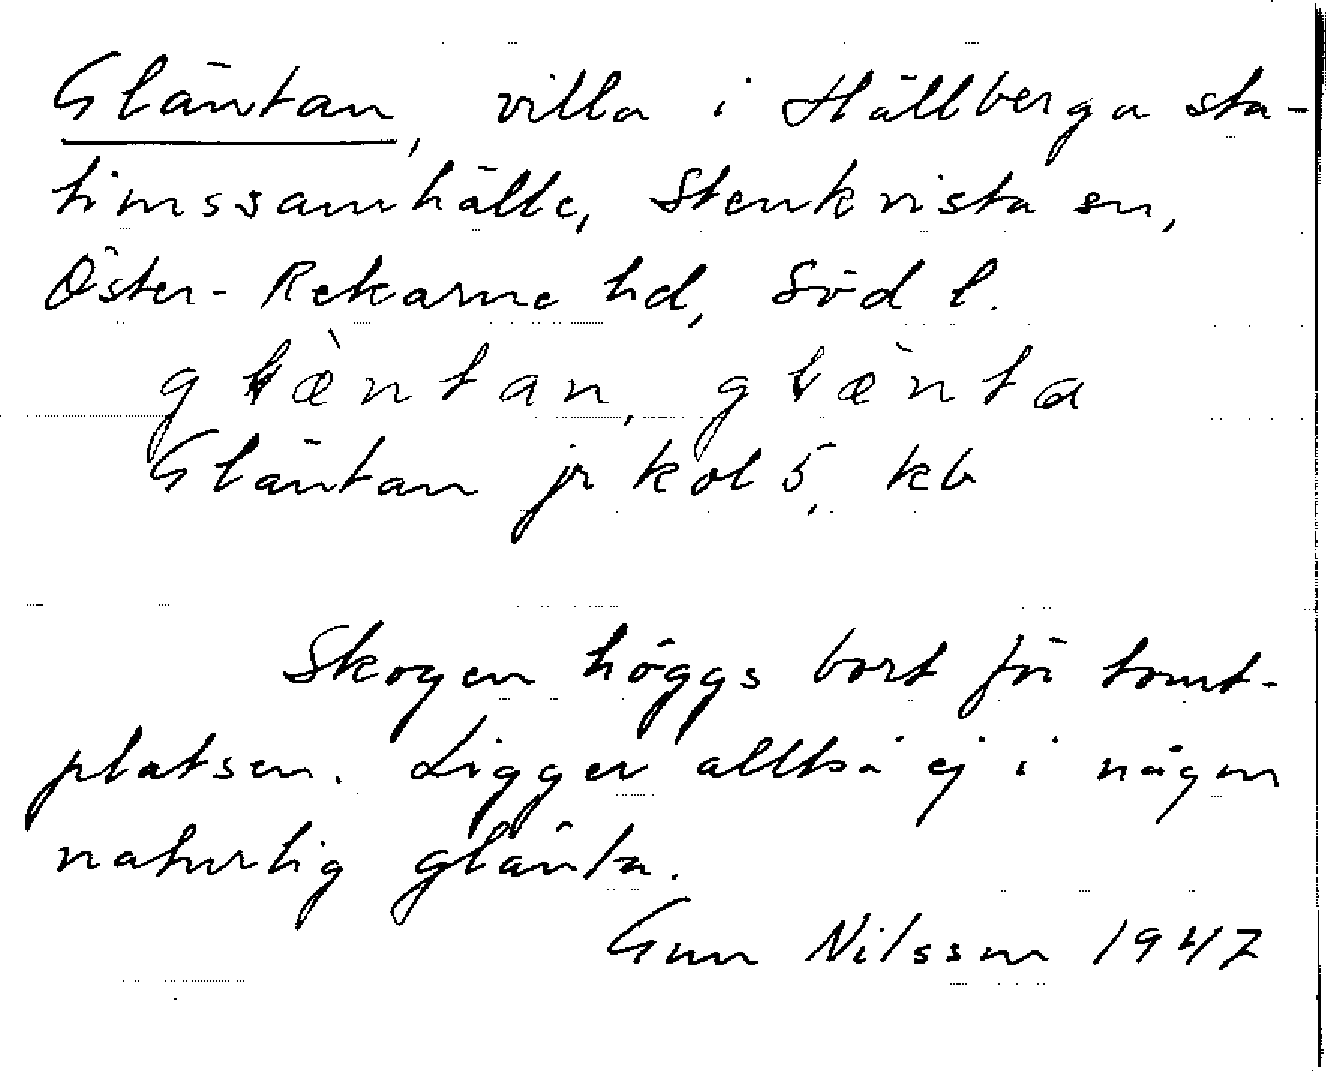 Gläntan, villa i Hällberga sta-
tionssamhälle, Stenkvista sn,
Öster-Rekarne hd, Söd l.
glæ̀ntan, glæ̀nta
Gläntan jr kol 5, kb
Skogen höggs bort för tomt-
platsen. Ligger alltså ej i någon
naturlig glänta.
Gun Nilsson 1947